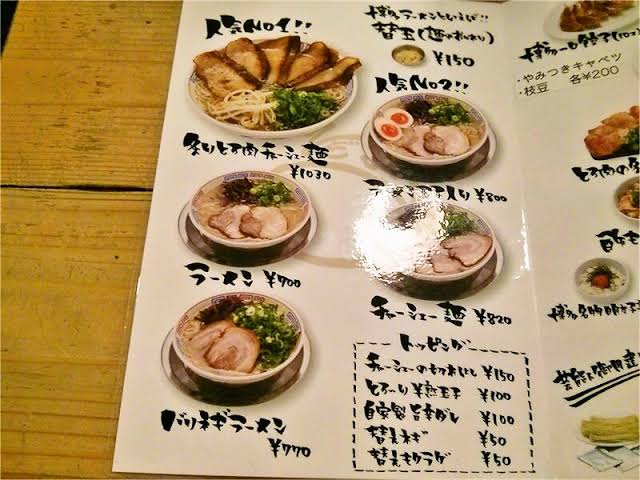 人気No1!!
炙りとろ肉チャーシュー麺
¥1030
ラーメン ¥700
バリネギラーメン
¥770
博多ラーメンといえば!!
替玉(麺のおかわり)
¥150
人気No2!!
玉子入り ¥800
チャーシュー麺 ¥820
トッピング
チャーシューの切れはし ¥150
とろ〜り半熟玉子 ¥100
自家製旨辛ダレ ¥100
替えネギ ¥50
替えキクラゲ ¥50
博多一口餃子(10コ)
・やみつきキャベツ
・枝豆 各¥200
とろ肉の
博多名物明太子